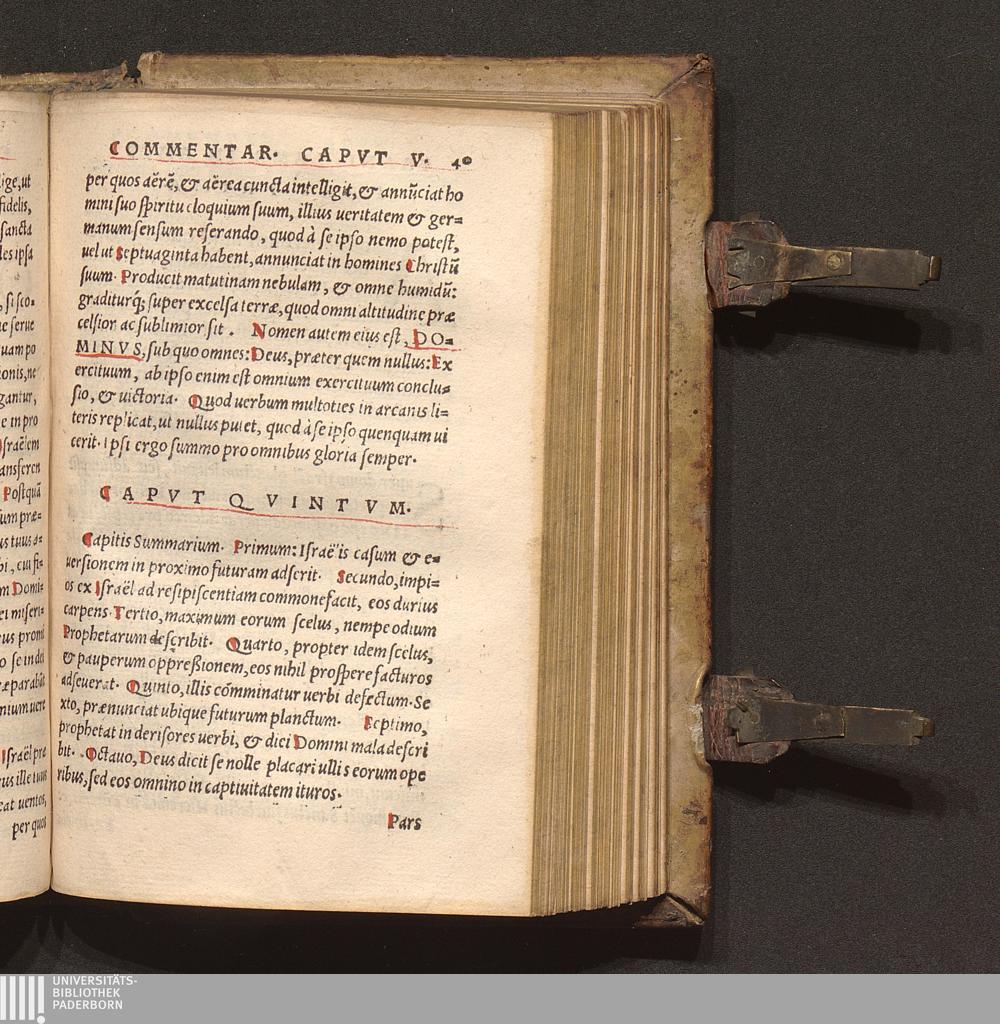 lige, ut
fidelis,
sancta
les ipsa
, si sco-
ue serue
uam po
ionis, ne
gantur,
e in pro
Israëlem
ansferen
Postquã
um præ=
us tuus a=
bi, cui fi-
m Domi-
ei miseri-
us promi
o se indei
ræparabit
nium uere
Israël præ
us ille tuus
cat uentos,
per quos
COMMENTAR. CAPVT V. 40
per quos aërē, & aërea cuncta intelligit, & annūciat ho
mini suo spiritu eloquium suum, illius ueritatem & ger=
manum sensum reserando, quod à se ipso nemo potest,
uel ut Septuaginta habent, annunciat in homines Christū
suum. Producit matutinam nebulam, & omne humidū:
graditurq; super excelsa terræ, quod omni altitudine præ
celsior ac sublimior sit. Nomen autem eius est, DO=
MINVS, sub quo omnes: Deus, præter quem nullus: Ex
ercituum, ab ipso enim est omnium exercituum conclu=
sio, & uictoria. Quod uerbum multoties in arcanis li=
teris replicat, ut nullus putet, quod à se ipso quenquam ui
cerit. Ipsi ergo summo pro omnibus gloria semper.
CAPVT QVINTVM.
Capitis Summarium. Primum: Israëlis casum & e=
uersionem in proximo futuram adscrit. Secundo, impi=
os ex Israël ad resipiscentiam commonefacit, eos durius
carpens. Tertio, maximum eorum scelus, nempe odium
Prophetarum describit. Quarto, propter idem scelus,
& pauperum oppreßionem, eos nihil prospere facturos
adseuerat. Quinto, illis cõmminatur uerbi defectum. Se
xto, prænunciat ubique futurum planctum. Septimo,
prophetat in derisores uerbi, & diei Domini mala descri
bit. Octauo, Deus dicit se nolle placari ullis eorum ope
ribus, sed eos omnino in captiuitatem ituros.
Pars
UNIVERSITÄTS-
BIBLIOTHEK
PADERBORN